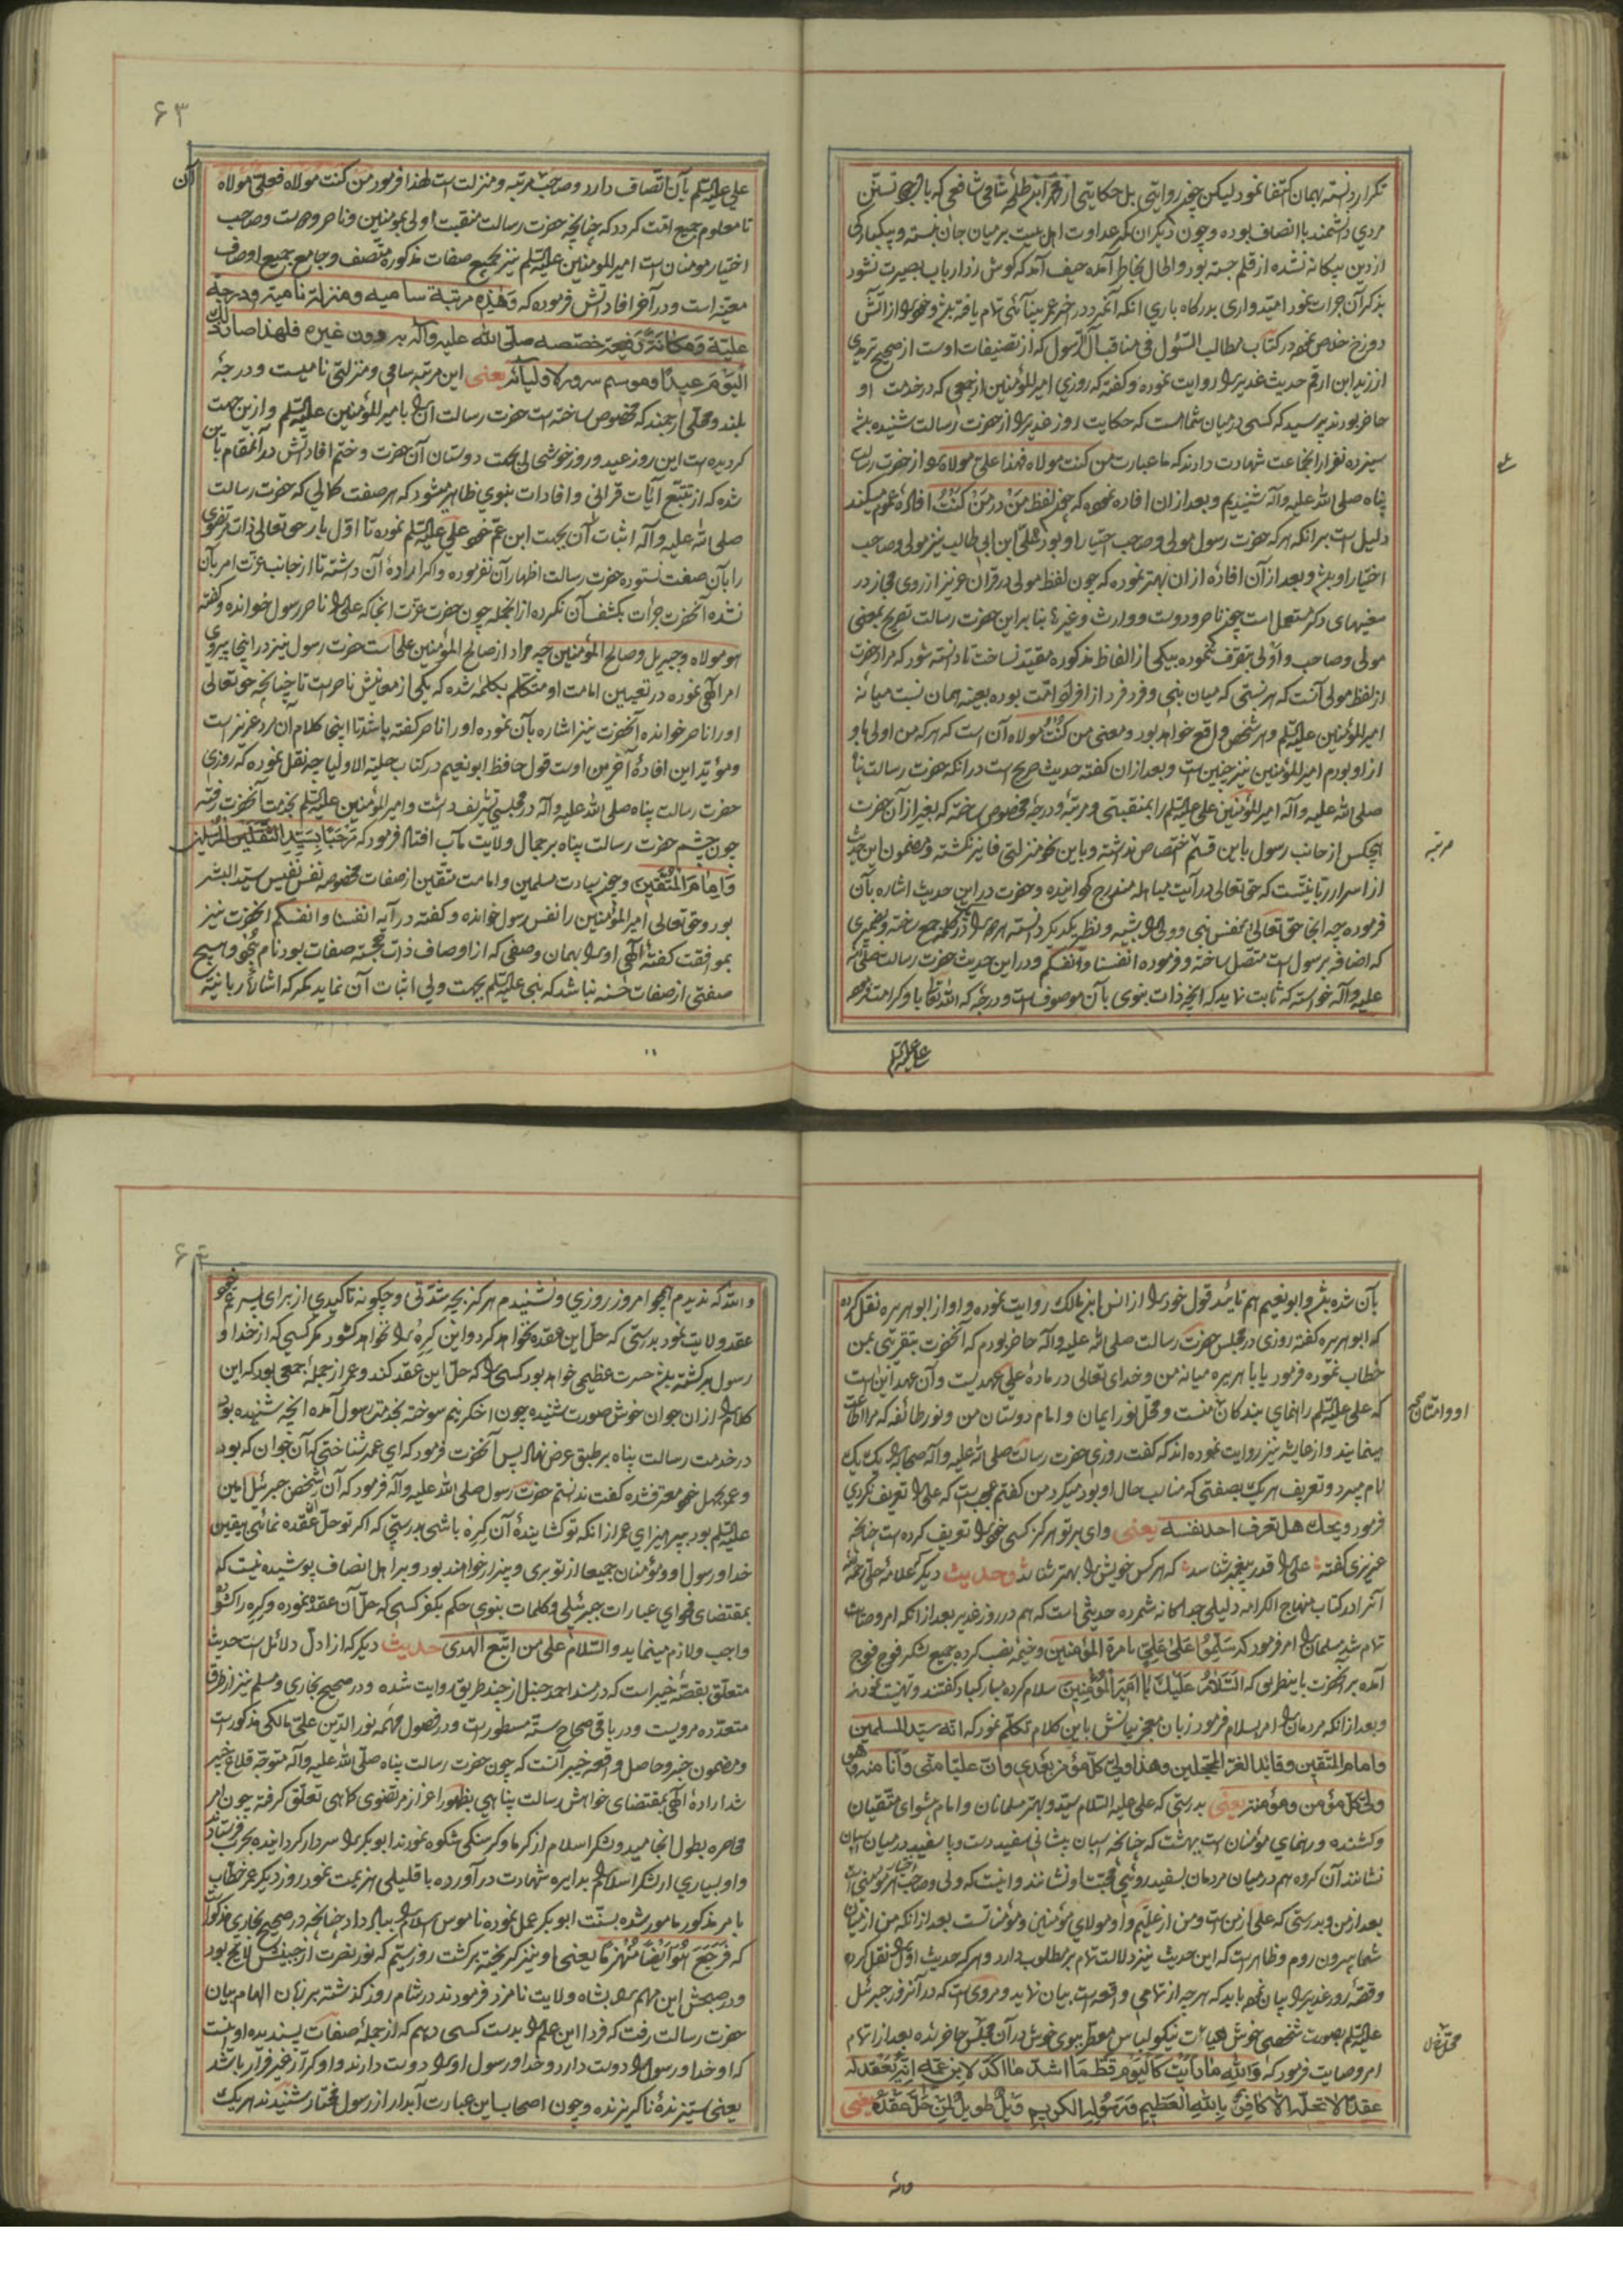 تکرار دانسته بهمان اکتفا نمود لیکن چند روایتی بل حکایتی از محمد ابن طلحهٔ شامی شافعی که
مردی دانشمند باانصاف بوده و چون دیگران کمر عداوت اهل بیت بر میان جان نبسته و بیکبارگی
از دین بیکانه نشده از قلم جسته بود و الحال بخاطر آمده حیف آمد که کوش زد ارباب بصیرت نشود
بذکر آن جرات نمود امیدواری بدرکاه باری انکه آنمرد در اخر عمر بینائی تام یافته باشد و خود را از آتش
دوزخ خلاص نموده در کتاب مطالب السئول فی مناقب آل الرسول که از تصنیفات اوست از صحیح ترمذی
از زید ابن ارقم حدیث غدیر را روایت نموده و کفته که روزی امیر المؤمنین از جمعی که در خدمت او
حاضر بودند پرسید که کسی در میان شما هست که حکایت روز غدیر را از حضرت رسالت شنیده باشد
سیزده نفر از انجماعت شهادت دادند که ما عبارت من کنت مولاه فهذا علی مولاه را از حضرت رسالت
پناه صلی الله علیه وآله شنیدیم و بعد از ان افاده نموده که چون لفظ مَنْ در مَنْ کُنْتُ افادهٔ عموم میکند
دلیل است بر انکه هر که حضرت رسول مولی و صاحب اختیار او بود علی ابن ابی طالب نیز مولی و صاحب
اختیار او باشد و بعد از آن افادهٔ از ان بهتر نموده که چون لفظ مولی در قران عزیز از روی مجاز در
معنیهای دکر مستعمل است چون ناصر و دوست و وارث و غیرها بنابراین حضرت رسالت تصریح بمعنی
مولی و صاحب و اولی بتصرف ننموده بیکی از الفاظ مذکوره مقید نساخت تا دانسته شود که مراد حضرت
از لفظ مولی آنست که هر نسبتی که میان نبی و فرد فرد از افراد امت بوده بعینه همان نسبت میانهٔ
امیر المؤمنین علیه السلم و هر شخص واقع خواهد بود و معنی من کُنْتُ مولاه آن است که هر که من اولی باو
از او بودم امیر المؤمنین نیز چنین است و بعد از ان کفته حدیث صریح است در انکه حضرت رسالت پناه
صلی الله علیه وآله امیر المؤمنین علی علیه السلم را بمنقبتی و مرتبهٔ و درجهٔ مخصوص ساخته که بغیر از آن حضرت
هیچکس از جانب رسول باین قسم اختصاص نداشته و باین نحو منزلتی فایز نکشته و مضمون این حدیث
از اسرار ربانیست که حق تعالی در آیت مباهله مندرج کردانیده و حضرت در این حدیث اشاره بآن
فرموده چه انجا حق تعالی نفس نبی و ولی را شبیه و نظیر یکدیکر دانسته هر دو را در یک کلمه جمع ساخته و بضمیری
که اضافه برسول است متصل ساخته و فرموده انفسنا وانفسکم و در این حدیث حضرت رسالت صلی الله
علیه وآله خواسته که ثابت نماید که انچه ذات نبوی بآن موصوف است و درجهٔ که الله تعالی باو کرامت نموده
مرتبه
علی علیه السلم
۶۳
علی علیه السلم بآن اتصاف دارد و صاحب مرتبه و منزلت است لهذا فرمود من کنت مولاه فعلی مولاه
آن
تا معلوم جمیع امت کردد که چنانچه حضرت رسالت منقبت اولی بمؤمنین و ناصر و دوست و صاحب
اختیار مومنان است امیر المؤمنین علیه السلم نیز بجمیع صفات مذکوره متصف و جامع جمیع اوصاف
معینه است و در آخر افاداتش فرموده که وهذه مرتبة سامیه ومنزلة نامیة ودرجة
علیّة ومکانة رفیعة خصّصه صلی الله علیه وآله به دون غیره فلهذا صار ذلک
الیوم عیدا وموسم سرور لاولیائه یعنی این مرتبهٔ سامی و منزلتی نامیست و درجهٔ
بلند و محلی ارجمند که مخصوص ساخته است حضرت رسالت انرا بامیر المؤمنین علیه السلم و از این جهت
کردیده است این روز عید و روز خوشحالی بجهت دوستان آن حضرت و ختم افاداتش در آنمقام باین
شده که از تتبع آیات قرانی و افادات نبوی ظاهر میشود که هر صفت کمالی که حضرت رسالت
صلی الله علیه وآله اثبات آن بجهت ابن عم خود علی علیه السلم نموده تا اول بار حق تعالی ذات مرتضوی
را بآن صفت نستوده حضرت رسالت اظهار آن نفرموده و اکر ارادهٔ آن داشته تا از جانب عزت امر بآن
نشده آنحضرت جرات بکشف آن نکرده از انجمله چون حضرت عزت انجا که علی را ناصر رسول خوانده و کفته
هو مولاه وجبریل وصالح المؤمنین چه مراد از صالح المؤمنین علی است حضرت رسول نیز در اینجا پیروی
امر الهی نموده در تعیین امامت او متکلم بکلمهٔ شده که یکی از معانیش ناصر است تا چنانچه حق تعالی
او را ناصر خوانده آنحضرت نیز اشاره بآن نموده او را ناصر کفته باشد تا اینجا کلام ان مرد عزیز است
و مؤید این افادهٔ آخرین اوست قول حافظ ابو نعیم در کتاب حلیة الاولیا چه نقل نموده که روزی
حضرت رسالت پناه صلی الله علیه وآله در مجلسی تشریف داشت و امیر المؤمنین علیه السلم بخدمت آنحضرت رفته
چون چشم حضرت رسالت پناه بر جمال ولایت مآب افتاد فرمود که مرحبا بسید المسلمین
وامام المتقین و چون سیادت مسلمین و امامت متقین از صفات مخصوصه نفس نفیس سید البشر
بود و حق تعالی امیر المؤمنین را نفس رسول خوانده و کفته در آیه انفسنا وانفسکم انحضرت نیز
بموافقت کفتهٔ الهی او را بهمان وصفی که از اوصاف ذات خجسته صفات بود نام نهاد و هیچ
صفتی از صفات حسنه نباشد که نبی علیه السلم بجهت ولی اثبات آن نماید مکر که اشارهٔ ربانیه
بآن شده باشد و ابو نعیم هم تائید قول خود را از انس ابن مالک روایت نموده و او از ابو هریره نقل کرده
که ابو هریره کفته روزی در مجلس حضرت رسالت صلی الله علیه وآله حاضر بودم که آنحضرت بتقریبی بمن
خطاب نموده فرمود یا با هریره میانه من و خدای تعالی در مادهٔ علی عهدیست و آن عهد آینست
که علی علیه السلم راهنمای بندکان منست و محل نور ایمان و امام دوستان من و نور طائفه که مرا اطاعت
مینمایند و از عایشه نیز روایت نموده اند که کفت روزی حضرت رسالت صلی الله علیه وآله صحابه را یک یک
نام میبرد و تعریف هر یک بصفتی که مناسب حال او بود میکرد من کفتم عجب است که علی را تعریف نکردی
فرمود ویحک هل تعرف احد نفسه یعنی وای بر تو هرکز کسی خود را تعریف کرده است چنانچه
عزیزی کفته علی را قدر پیغمبر شناسد که هر کس خویش را بهتر شناسد وحدیث دیکر علامهٔ حلی رحمه الله
آنرا در کتاب منهاج الکرامه دلیلی جداکانه شمرده حدیثی است که هم در روز غدیر بعد از انکه امر وصایت
تمام شد مسلمانان را امر فرمود که سلّموا علی علیّ بامرة المؤمنین و خیمه نصب کرده جمیع لشکر فوج فوج
آمده بر آنحضرت باینطریق که السلام علیک یا امیر المؤمنین سلام کرده مبارکباد کفتند و تهنیت نمودند
و بعد از انکه مردمان را امر بسلام فرمود زبان معجز بیانش باین کلام تکلم نمود که انه سید المسلمین
وامام المتقین وقائد الغر المحجلین وهذا ولی کل مؤمن بعدی وان علیا منی وانا منه وهو
ولی کل مؤمن ومؤمنة یعنی بدرستی که علی علیه السلام سید و بهتر مسلمانان و امام پیشوای متقیان
و کشنده و رهنمای مؤمنان است ببهشت که چنانچه اسبان پیشانی سفید دست و پا سفید در میان اسبان
نشانند آن کروه هم در میان مردمان بسفید روئی محبت او نشانند و اینست که ولی و صاحب اختیار هر مؤمنی است
بعد از من و بدرستی که علی از من است و من از علیم و او مولای مؤمنین و مؤمناتست بعد از انکه من از میان
شما بیرون روم و ظاهر است که این حدیث نیز دلالت تمام بر مطلوب دارد و هر که حدیث اول را نقل کرده
و قصهٔ روز غدیر را بیان نموده باید که هر چه از تمامی واقعه است بیان نماید و مروی است که در آنروز جبرئیل
علیه السلم بصورت شخصی خوش هیات نیکو لباس معطر ببوی خوش در آن مجلس حاضر شده بعد از اتمام
امر وصایت فرمود که والله ما رایت کالیوم قط ما اشد ما اکد لابن عمه انه یعقد له
عقدا لا تحله الا کافر بالله العظیم ورسوله الکریم ویل طویل لمن حل عقده یعنی
۶۴
والله که ندیدم همچو امروز روزی و نشنیدم هرکز بچه شدتی و چکونه تاکیدی از برای پسر عم خود
عقد ولایت نمود بدرستی که حل این عقده نخواهد کرد و این کره را نخواهد کشود مکر کسی که از خدا و
رسول برکشته باشد حسرت عظیمی خواهد بود کسی را که حل این عقد کند و عمر از جملهٔ جمعی بود که این
کلام را از ان جوان خوش صورت شنیده چون اخکر نیم سوخته بخدمت رسول آمده انچه شنیده بود
در خدمت رسالت پناه بر طبق عرض نهاد پس آنحضرت فرمود که ای عمر شناختی که آن جوان که بود
و عمر بجهل خود معترف شده کفت ندانستم حضرت رسول صلی الله علیه وآله فرمود که آن شخص جبرئیل امین
علیه السلم بود بپرهیز ای عمر از انکه تو کشایندهٔ آن کره باشی بدرستی که اکر تو حل ان عقده نمائی بیقین
خدا و رسول او و مؤمنان جمیعا از تو بری و بیزار خواهند بود و بر اهل انصاف پوشیده نیست که
بمقتضای فحوای عبارات جبرئیلی و کلمات نبوی حکم بکفر کسی که حل آن عقده نموده و کره را کشوده
واجب و لازم مینماید والسلام علی من اتبع الهدی حدیث دیکر که از ادل دلائل است حدیث
متعلق بقصهٔ خیبر است که در مسند احمد حنبل از چند طریق روایت شده و در صحیح بخاری و مسلم نیز از طرق
متعدده مرویست و در باقی صحاح سته مسطور است و در فصول مهمه نور الدین علی مالکی مذکور است
و مضمون خبر و حاصل واقعه خیبر آنست که چون حضرت رسالت پناه صلی الله علیه وآله متوجه قلاع خیبر
شد ارادهٔ الهی بمقتضای خواهش رسالت پناهی بظهور اعزاز مرتضوی کماهی تعلق کرفته چون امر
محاصره بطول انجامید و لشکر اسلام از کرما و کرسنکی شکوه نمودند ابو بکر را سردار کردانیده بحرب فرستاد
و او بسیاری از لشکر اسلام را بدایره شهادت در آورده با قلیلی هزیمت نمود روز دیکر عمر خطاب
بامر مذکور مامور شده بسنت ابو بکر عمل نموده ناموس اسلام را بباد داد چنانچه در صحیح بخاری مذکور است
که فرجع هو ایضا منهزما یعنی او نیز کریخته برکشت روز سیم که نور نصرت از جبینش لایح بود
و در صبحش این مهم را بشاه ولایت نامزد فرمودند در شام روز کذشته بر زبان الهام بیان
حضرت رسالت رفت که فردا این علم را بدست کسی دهم که از جملهٔ صفات پسندیدهٔ او اینست
که او خدا و رسول را دوست دارد و خدا و رسول او را دوست دارند و او کرار غیر فرار باشد
یعنی ستیزندهٔ ناکریزنده و چون اصحاب این عبارت آبدار از رسول مختار شنیدند هر یک